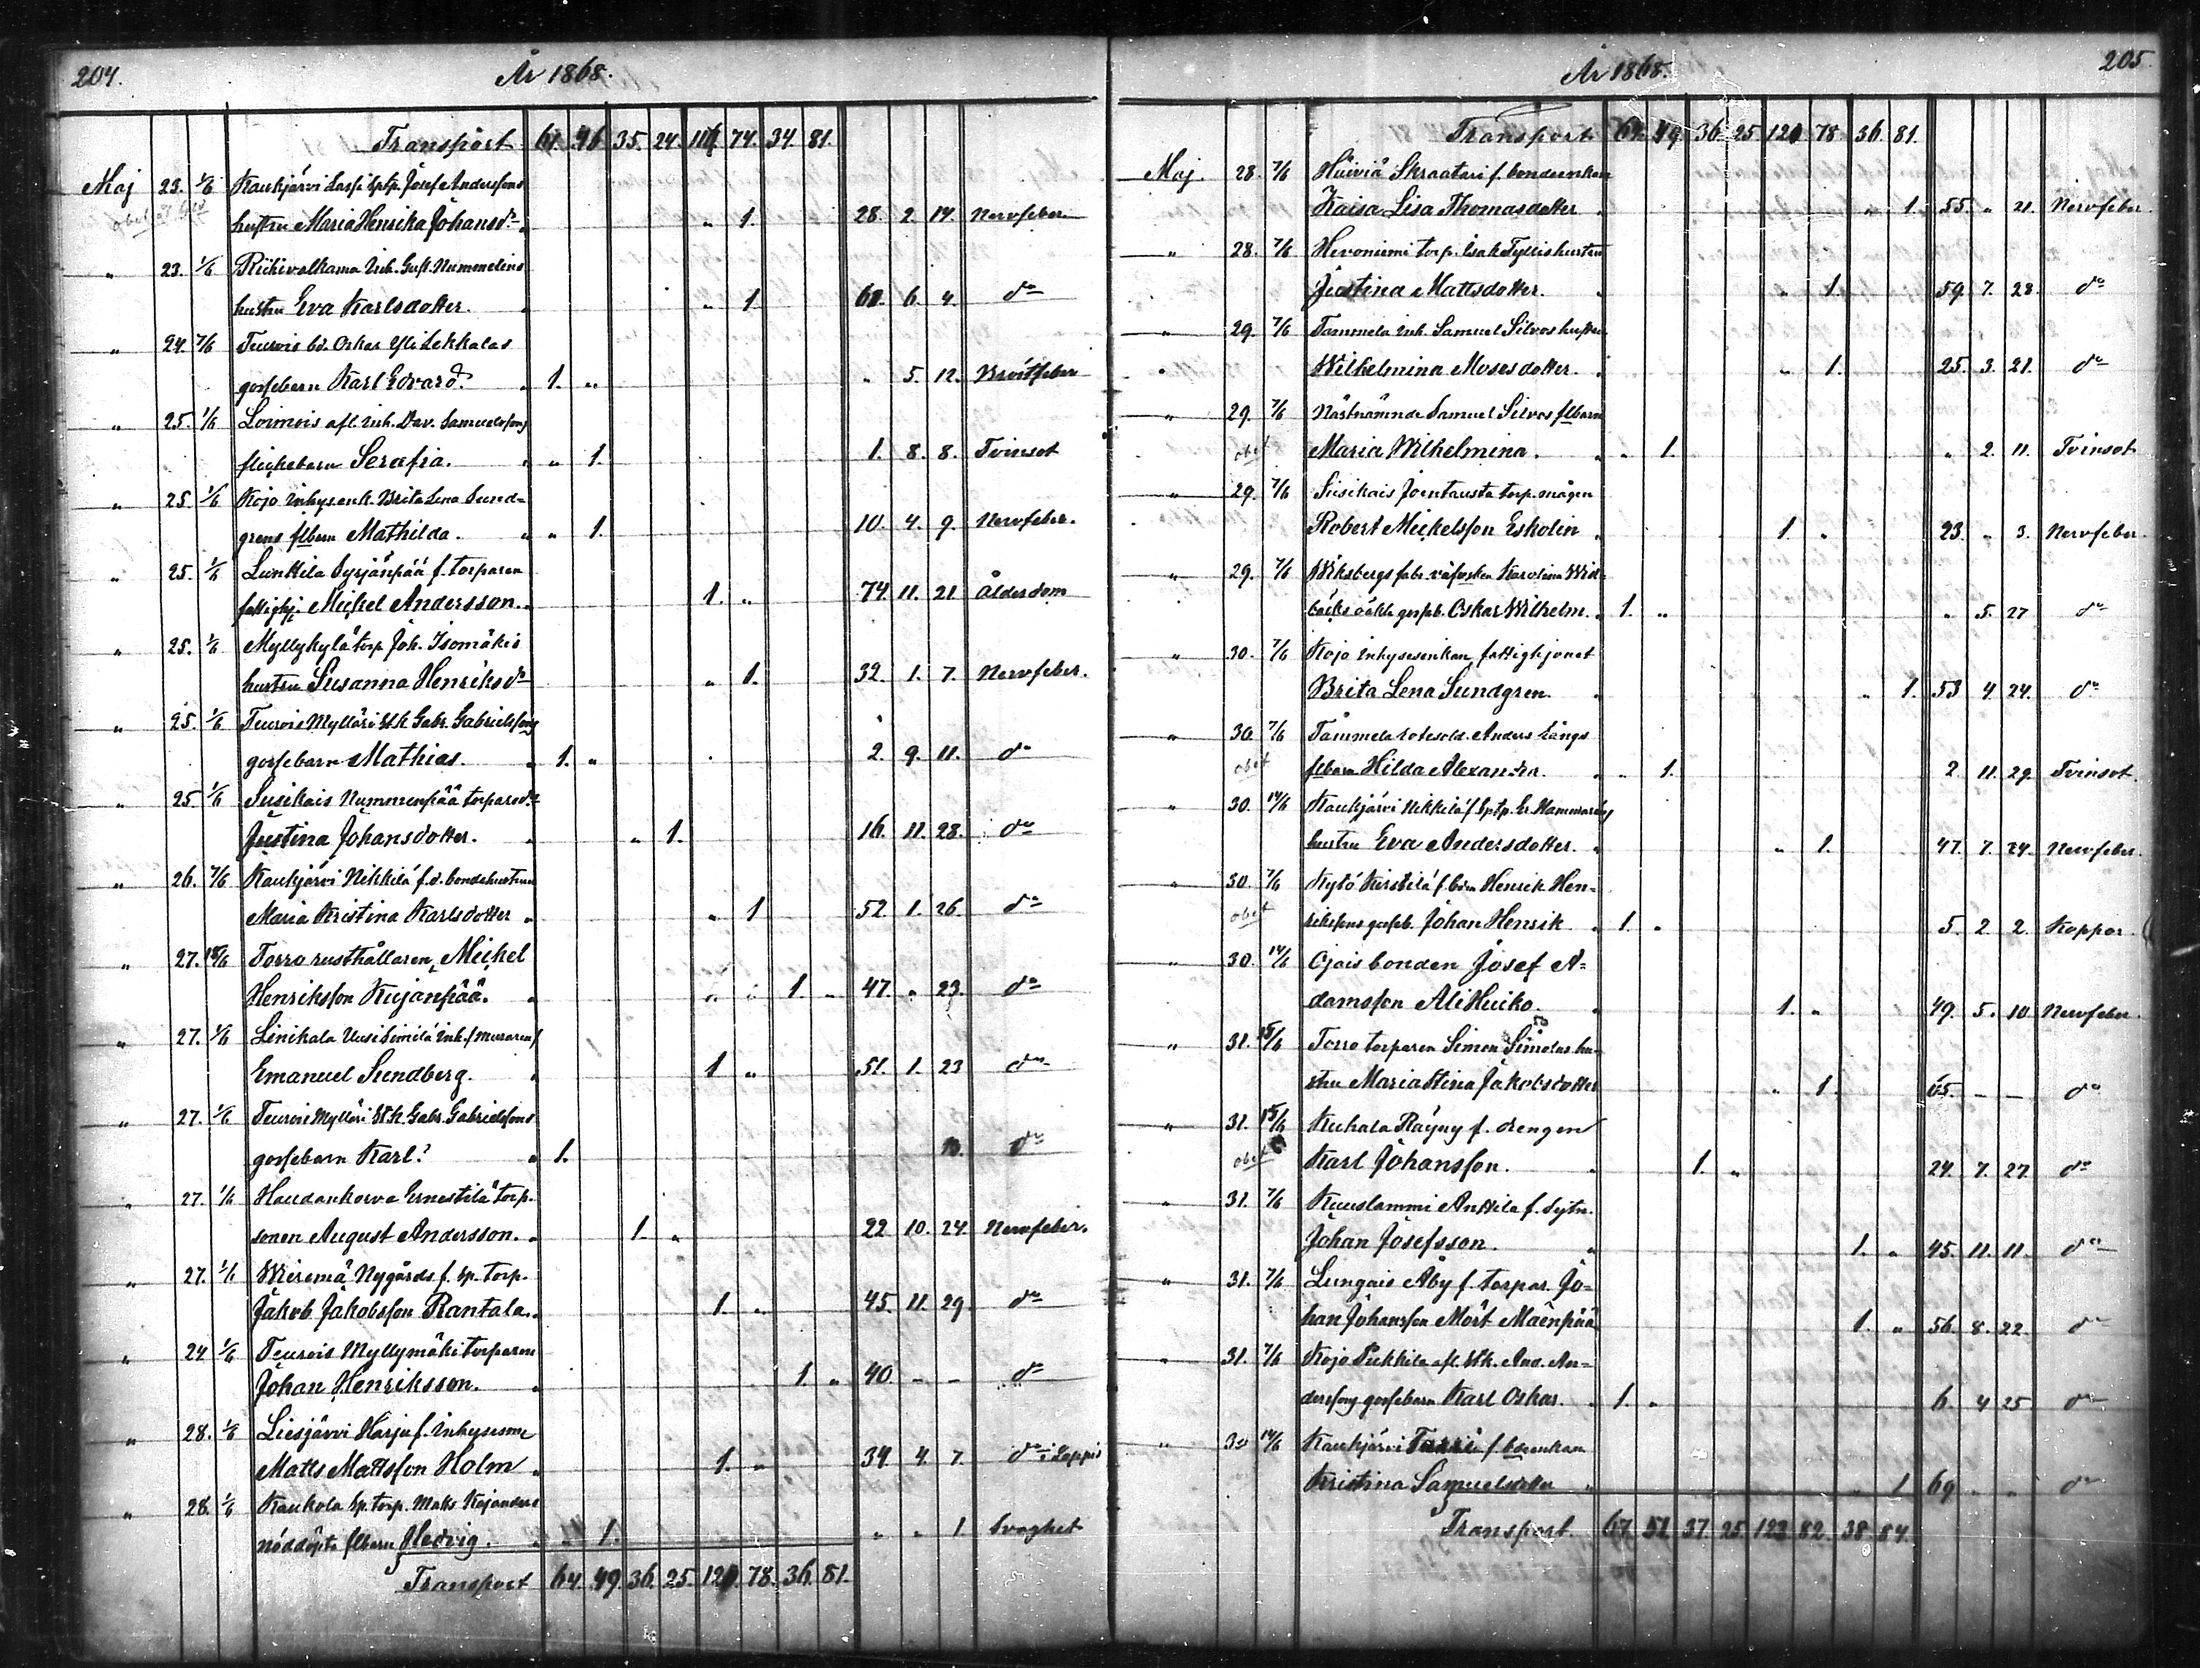 204. År 1868.
Transport 61. 46. 35. 24. 116 74. 34. 81.
Maj 23. 1/6 Kaukjärvi Lassi sptp. Josef Anderssons
hustru Maria Henrika Johansdr. „ 1. 28. 2 14. Nervfeber
„ 23. 1/6 Riihivalkama inh. Gust. Nummelins
hustru Eva Karlsdotter. „ 1. 61. 6. 4. do
„ 24. 7/6 Teurois bd. Oskar Yli Lekkalas
gossebarn Karl Edvard. „ 1. „ „ 5. 12. Bröstfeber
„ 25. 1/6 Loimois afl. inh. Dav. Samuelssons
flickebarn Serafia. „ „ 1. 1. 8. 8. Tvinsot
„ 25. 1/6 Kojo inhysenk. Brita Lena Sund-
grens flbarn Mathilda. „ „ 1. 10. 4. 9. Nervfeber.
„ 25. 1/6 Lunkkila Syrjänpää f. torparen
fattighj. Mickel Andersson. „ 1. „ 74 11. 21 Ålderdom
„ 25. 1/6 Myllykylä torp. Joh. Isomäkis
hustru Susanna Henriksdr „ 1. 32. 1. 7. Nervfeber.
„ 25. 1/6 Teurois Mylläri Gabr. Gabrielssons
gossebarn Mathias. „ 1. „ 2. 9. 11. do
„ 25 1/6 Susikais Nummenpää torparedr
Justina Johansdotter. „ „ 1. 16. 11. 28. do
„ 26. 7/6 Kaukjärvi Nikkilä f.d. bondehustrun
Maria Kristina Karlsdotter „ „ 1 52. 1. 26. do
„ 27. Torro rusthållaren Mickel
Henriksson Kujanpää. „ 1. „ 47. „ 23. do
„ 27. 1/6 Linikala Uusisimilä inh. (muraren)
Emanuel Sundberg. „ 1 „ 51. 1. 23 do
„ 27. 1/6 Teurois Mylläri Gabr. Gabrielssons
gossebarn Karl. „ 1. do
„ 27. 1/6 Haudankorva Ernestilä torp.
sonen August Andersson. „ 1. „ 22 10. 24. Nervfeber.
„ 27. 1/6 Wieremä Nygårds f. sp. torp.
Jakob Jakobsson Rantala. „ 1. „ 45. 11. 29. do
„ 24 1/6 Teurois Myllymäki torparen
Johan Henriksson. „ 1. „ 40. – – do
„ 28. 1/6 Liesjärvi Harju f. inhysesm
Matts Mattsson Holm „ 1. „ 34. 4. 7. do i Loppis
„ 28. 1/6 Kaukola sp. torp. Matts Kajanders
nöddöpta flbarn Hedvig. „ „ 1. „ „ 1 Svaghet
Transport 64. 49. 36. 25. 120. 78. 36. 81.
År 1868. 205
Transport 64. 49. 36. 25. 120 78. 36. 81.
Maj. 28. 7/6 Häiviä Skraatari f. bondeenkan
Kaisa Lisa Thomasdotter „ „ 1. 55. „ 21. Nervfeber.
„ 28. 7/6 Hevoniemi torp. Isak Tyllis hustru
Justina Mattsdotter. „ 1. 59. 7. 28. do
„ 29. 7/6 Tammela inh. Samuel Silvos hustru
Wilhelmina Mosesdotter. „ 1. 25. 3. 21. do
„ 29. 7/6 Nästnämnde Samuel Silvos flbarn
obet Maria Wilhelmina. „ „ 1. „ 2. 11. Tvinsot
„ 29. 7/6 Susikais Joentausta torp. mågen
Robert Mickelsson Eskolin 1. „ 23. „ 3. Nervfeber.
„ 29. 7/6 Wiksbergs fabr. väfversken Karolina Wid-
bäcks oäkta gossb. Oskar Wilhelm. „ 1. „ „ 5. 27 do
„ 30. 7/6 Kojo inhysesenkan fattighjonet
Brita Lena Sundgren „ 1. 53 4. 24. do
„ 30. 7/6 Tammela rotesold. Anders Långs
obet flbarn Hilda Alexandra. „ „ 1. 2. 11. 29. Tvinsot
„ 30. 14/6 Kaukjärvi Nikkilä f. sptp.
hustru Eva Andersdotter. „ „ 1. 47. 7. 24. Nervfeber.
„ 30. 7/6 Kytö Kirstilä f. bden Henrik Hen-
obet rikssons gossb. Johan Henrik „ 1. „ 5. 2. 2. Koppor.
„ 30. 14/6 Ojais bonden Josef A-
damsson Ali Huiko. 1. „ 49. 5. 10. Nervfeber.
„ 31. 15/6 Torro torparen Simon Simolas hu-
stru Maria Stina Jakobsdotter „ 1. 65. – – do
„ 31. 15/6 Kuhala Räyny f. drengen
obet Karl Johansson. 1. „ 24. 7. 27. do
„ 31. 7/6 Kuuslammi Anttila f. sytn.
Johan Josefsson. 1. „ 45. 11. 11. do
„ 31. 7/6 Lungais Åby f. torpar. Jo-
han Johansson Mört Mäenpää 1. „ 56. 8. 22. do
„ 31. 7/6 Kojo Pirkkila afl. And. An-
derssons gossebarn Karl Oskar. „ 1. „ 6. 4 25 do
„ 14/6 Kaukjärvi f. bdeenkan
Kristina Samuelsdotter „ 1 69 „ „ do
Transport. 67. 51. 37. 25. 123. 82. 38. 84.